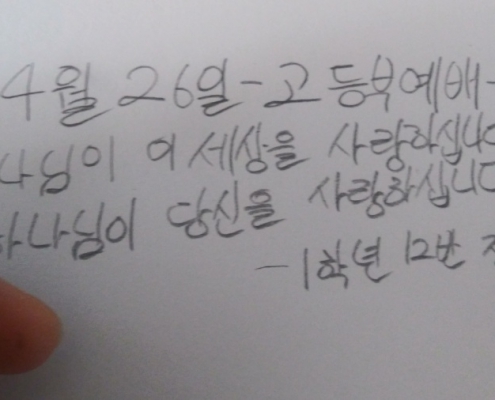 4월 26일-고등부예배-
나님이 이 세상을 사랑하십니다
하나님이 당신을 사랑하십니다
-1학년 12반